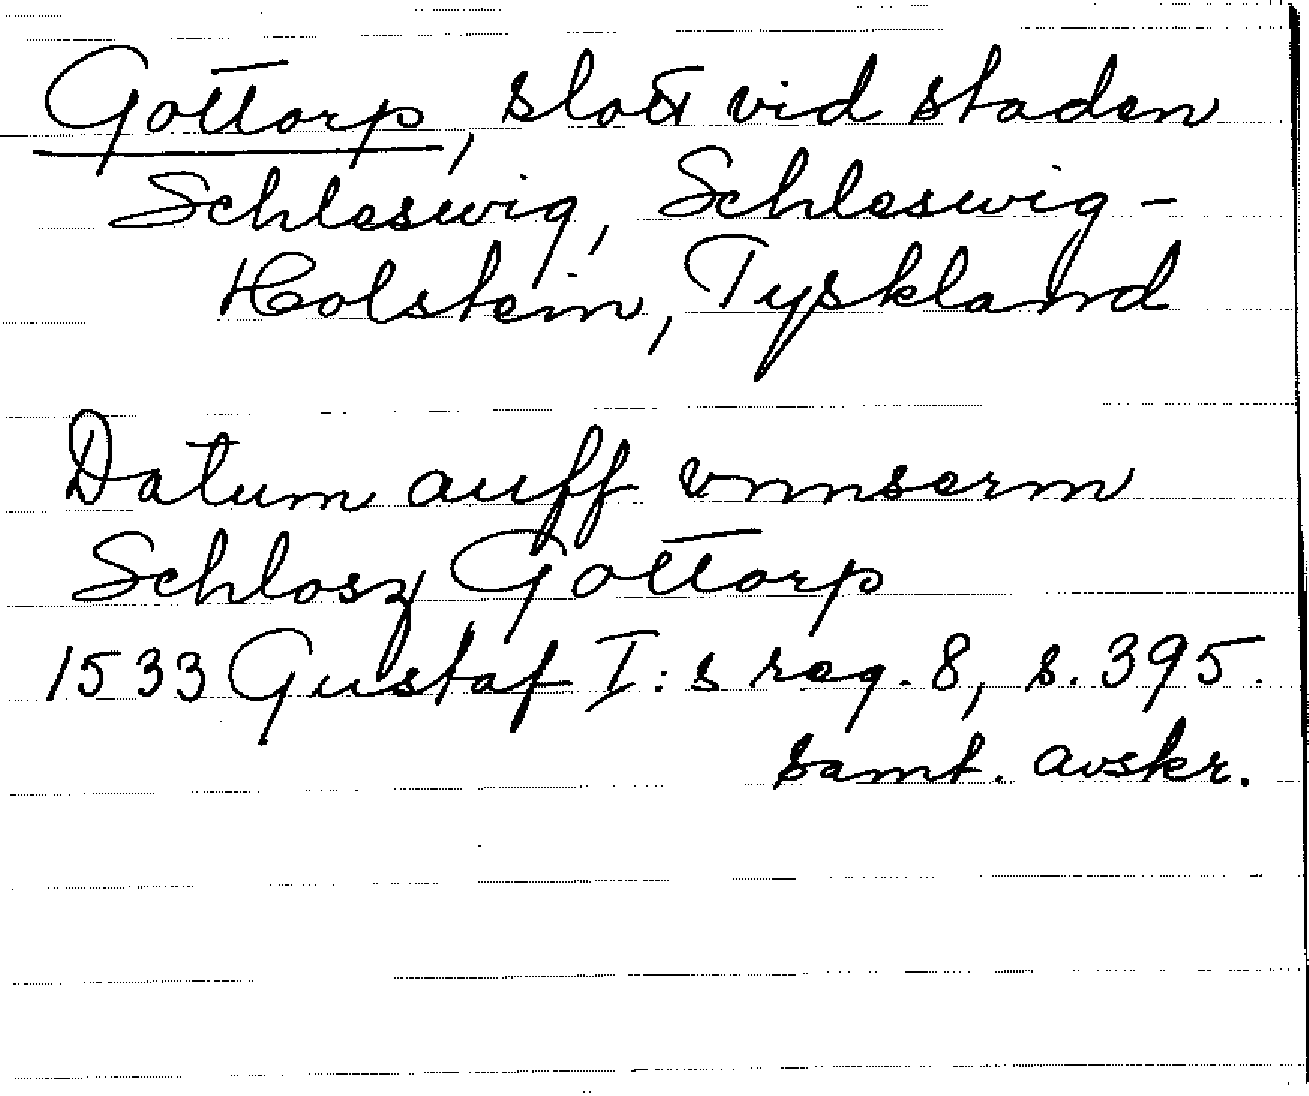 Gottorp, slott vid staden
Schleswig, Schleswig-
Holstein, Tyskland
Datum auff vnnserm
Schlosz Gottorp
1533 Gustaf I:s reg. 8, s. 395.
samt. avskr.